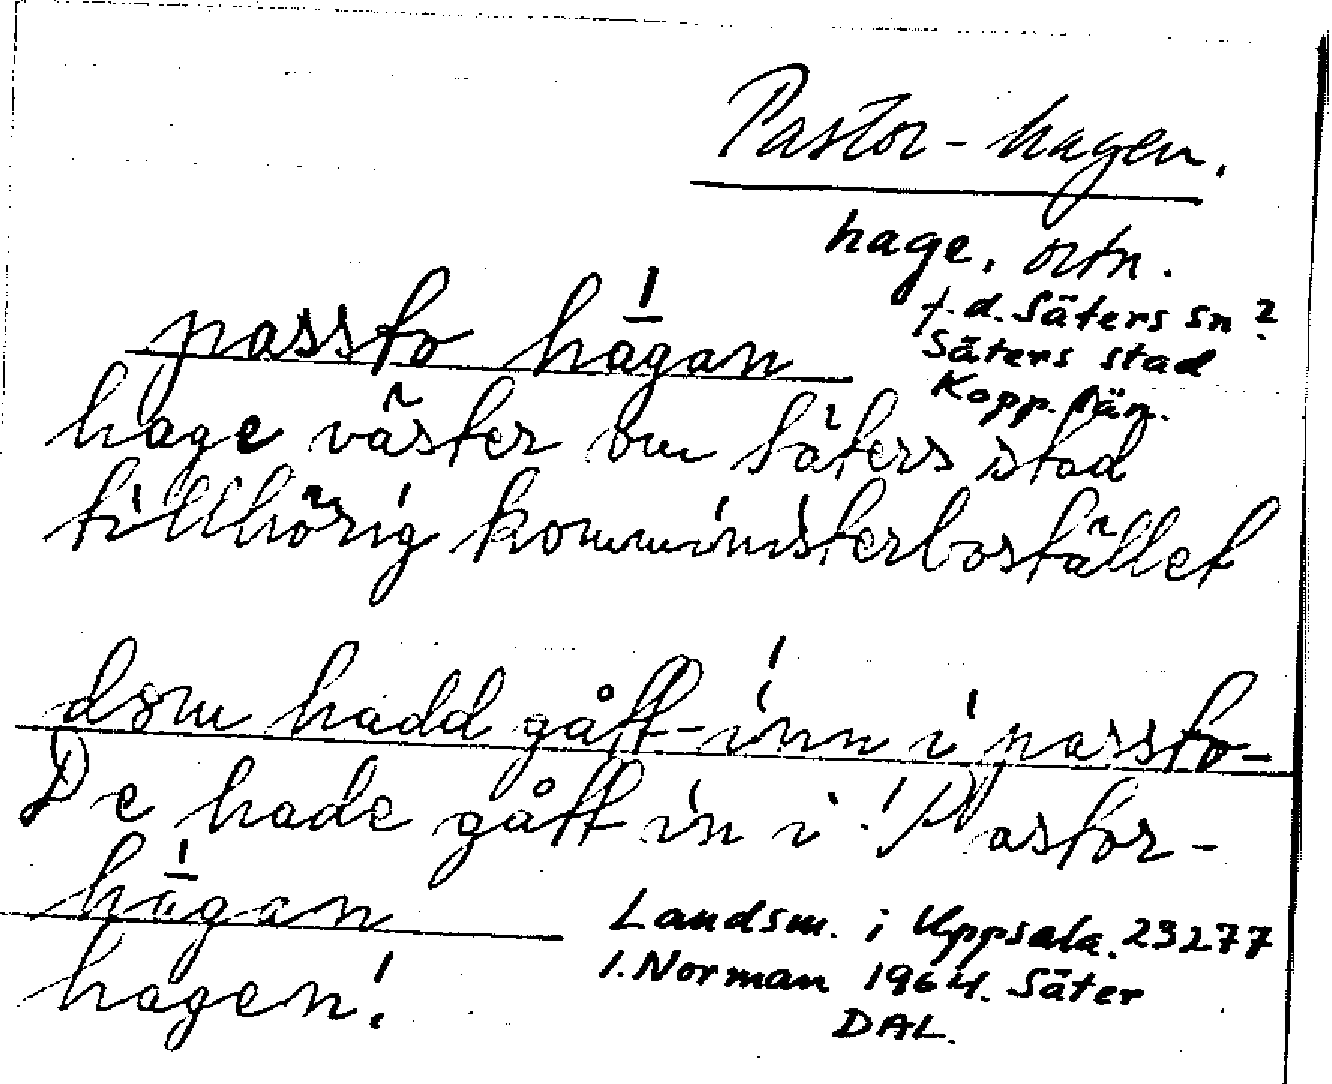 Pastor-hagen.
hage, ortn.
f.d. Säters sn?
Säters stad
Kopp. län.
passto hagan
hage väster om Säters stad
tillhörig komministerbostället
dsm hadd gått-inn i passto-
De hade gått in i ! Pastor-
hagan
hagen!
Landsm. i Uppsala. 23277
I. Norman 1964. Säter
DAL.